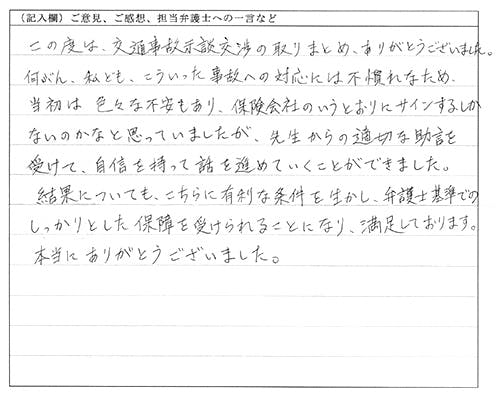 (記入欄)ご意見、ご感想、担当弁護士への一言など
この度は、交通事故示談交渉の取りまとめ、ありがとうございました。
何がん、私とも、こういった事故への対応には不慣れなため、
当初は 色々な不安もあり、保険会社のいうとおりにサインするしか
ないのかなと思っていましたが、先生からの適切な助言を
受けて、自信を持って話を進めていくことができました。
結果についても、こちらに有利な条件を生かし、弁護士基準での
しっかりとした保障を受けられることになり、満足しております。
本当にありがとうございました。